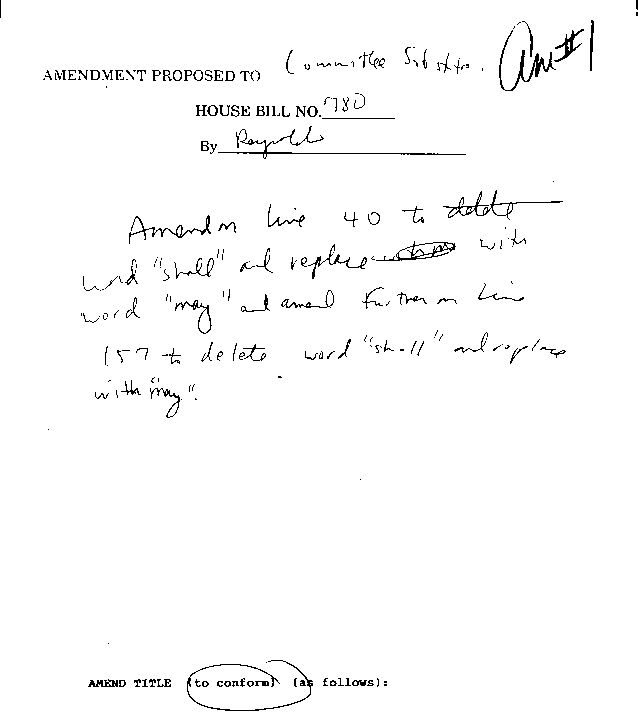 Am #1
AMENDMENT PROPOSED TO Committee Substitu.
HOUSE BILL NO. 780
By Reynolds
Amend on line 40 to delete
word "shall" and replace with
word "may" and amend further on line
157 to delete word "shall" and replace
with "may".
AMEND TITLE (to conform) (as follows):